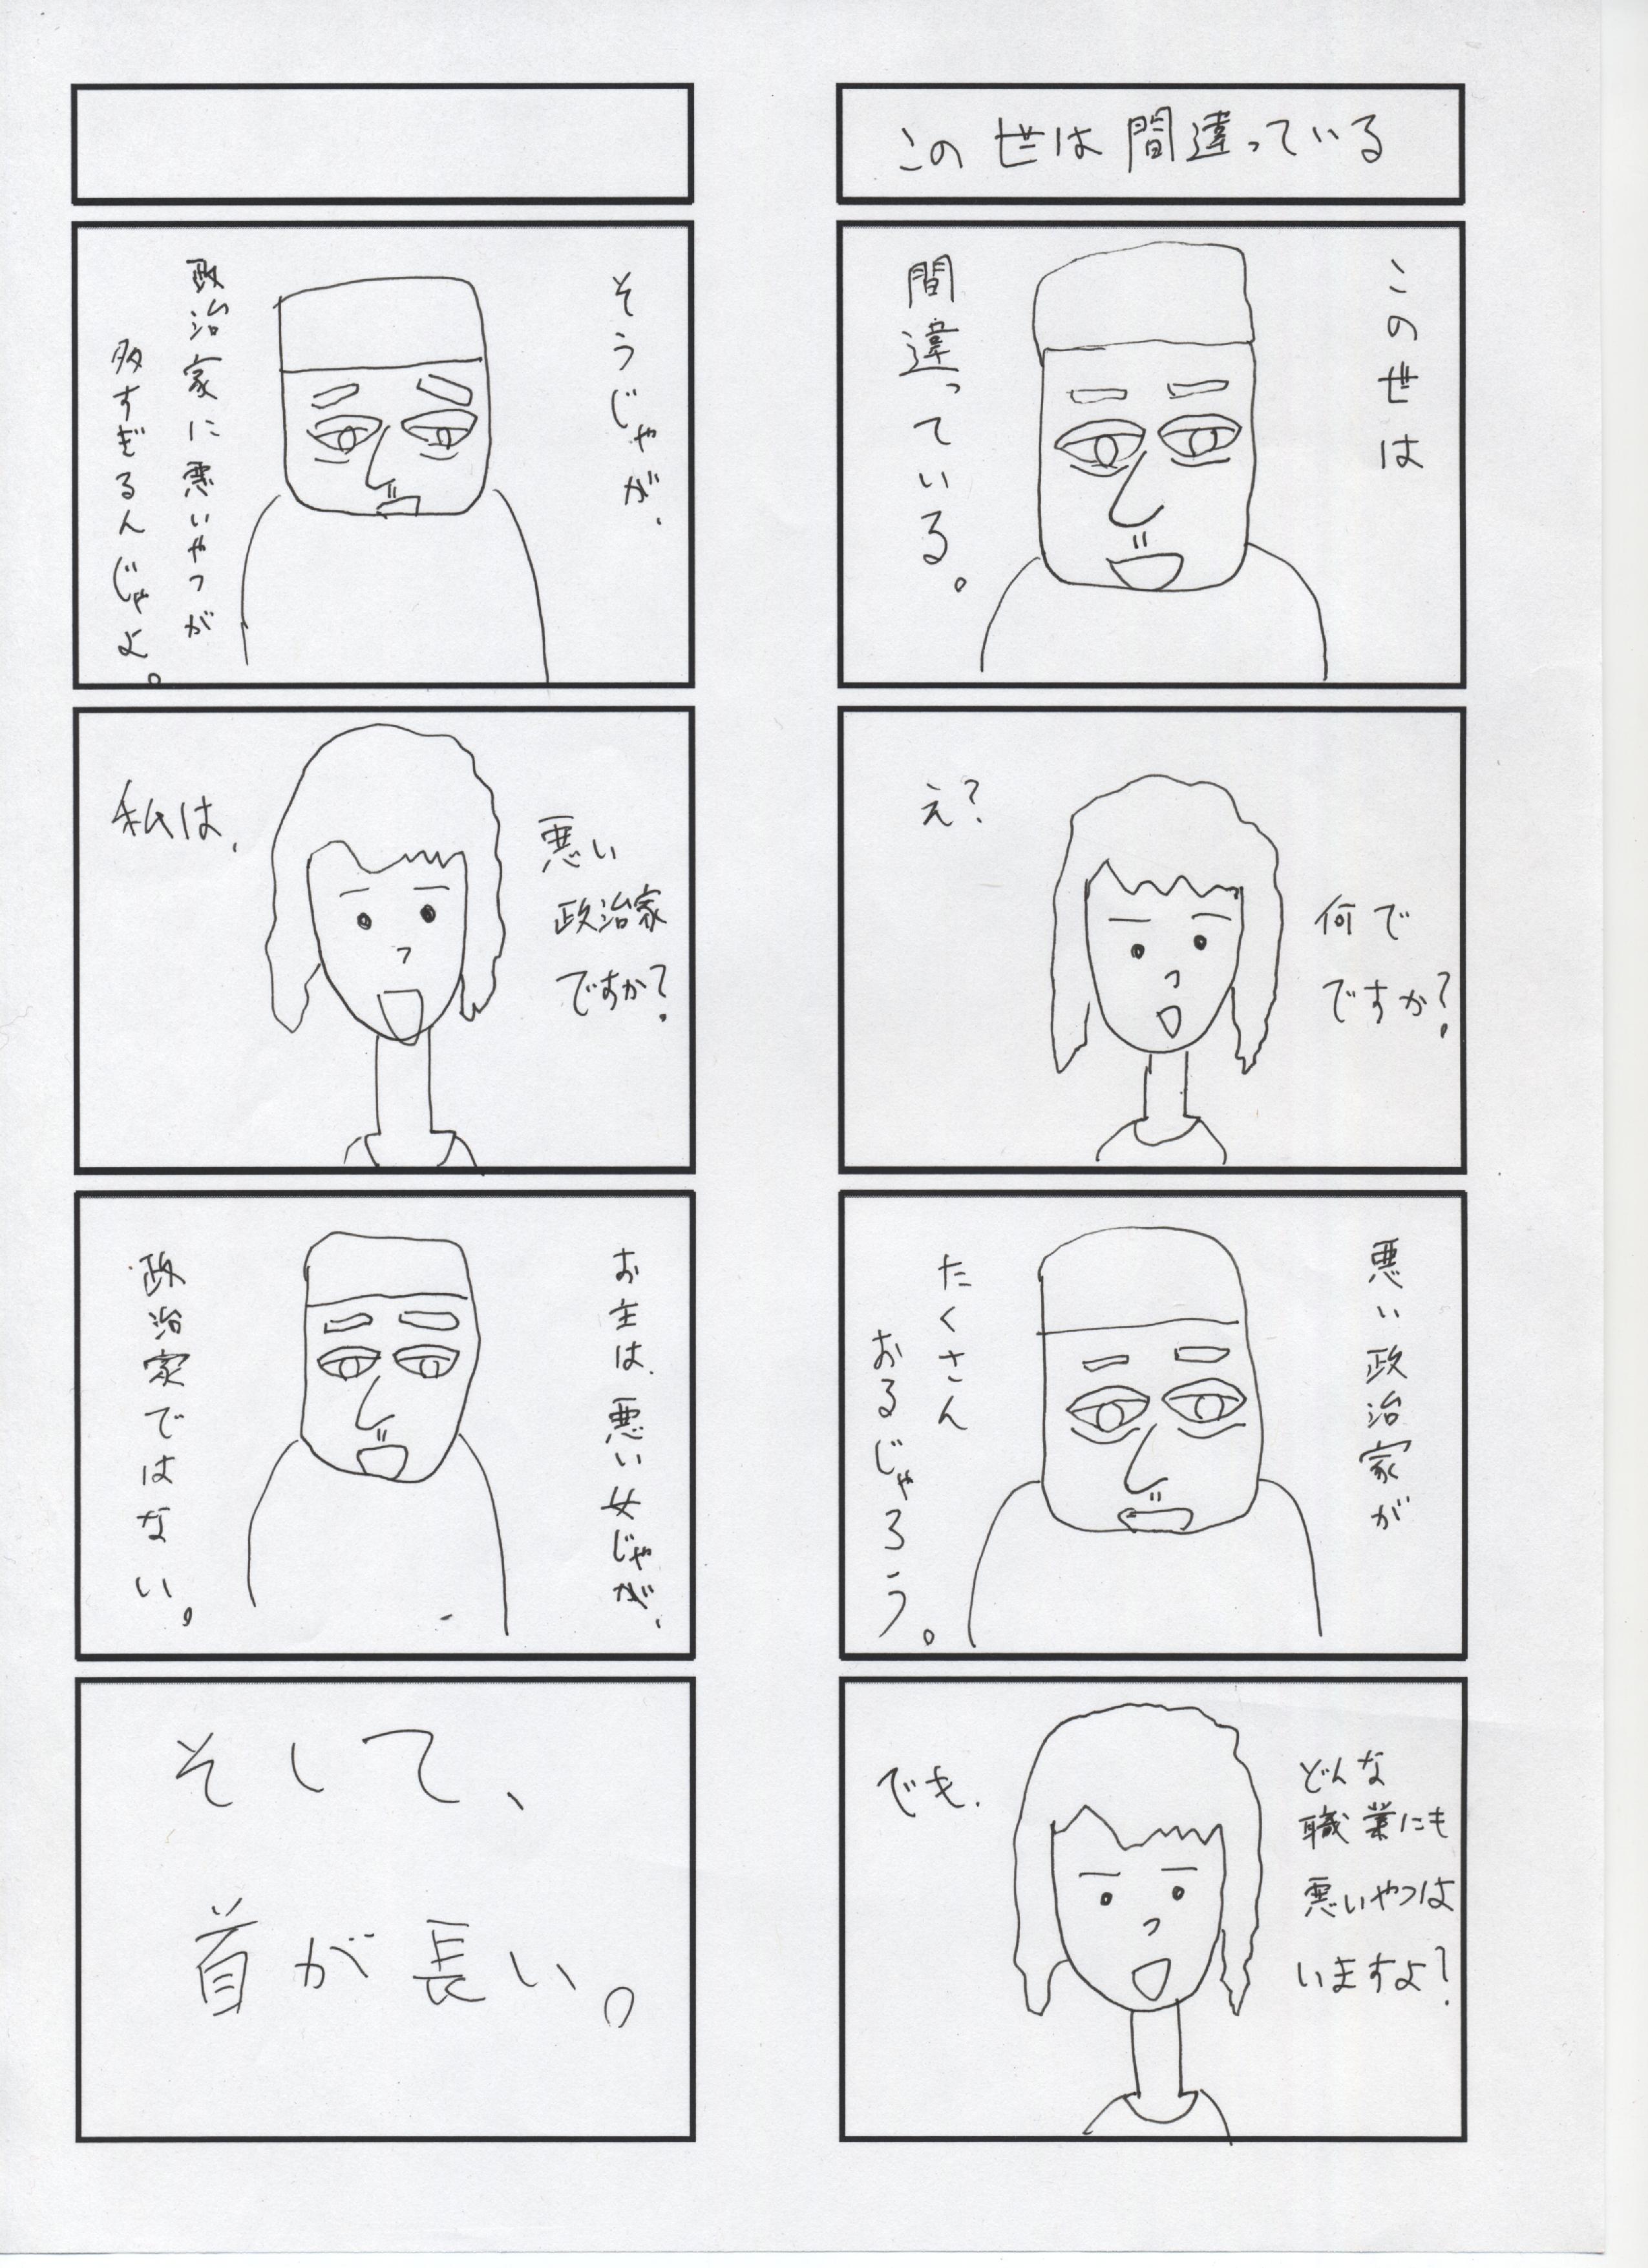 この世は間違っている
この世は
間違っている。
え?
何で
ですか?
悪い政治家が
たくさん
おるじゃろう。
でも、
どんな
職業にも
悪いやつは
いますよ?
そうじゃが、
政治家に悪いやつが
多すぎるんじゃよ。
私は、
悪い
政治家
ですか?
お主は、悪い女じゃが、
政治家ではない。
そして、
首が長い。